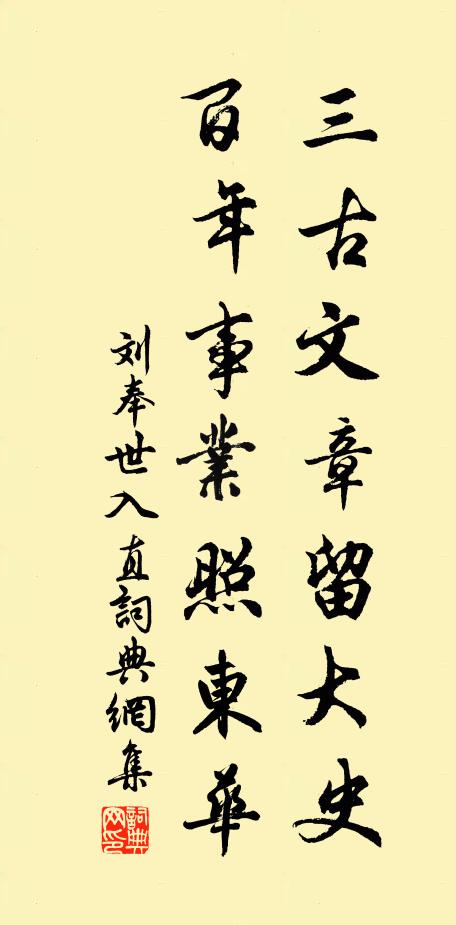 三古文章留大史
百年事業照東華
刘奉世入直詞典網集
詞典網印